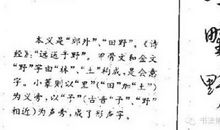 本义是“郊外”、“田野”。《诗
经》:“远送于野”。甲骨文和金文
“野”字由“林”、“土”构成，是会意
字。小篆则以“里”(“田”加“土”)
为义旁，以“予”(古音“予”、“野”
相近)为声旁，成了形声字。
野
书法